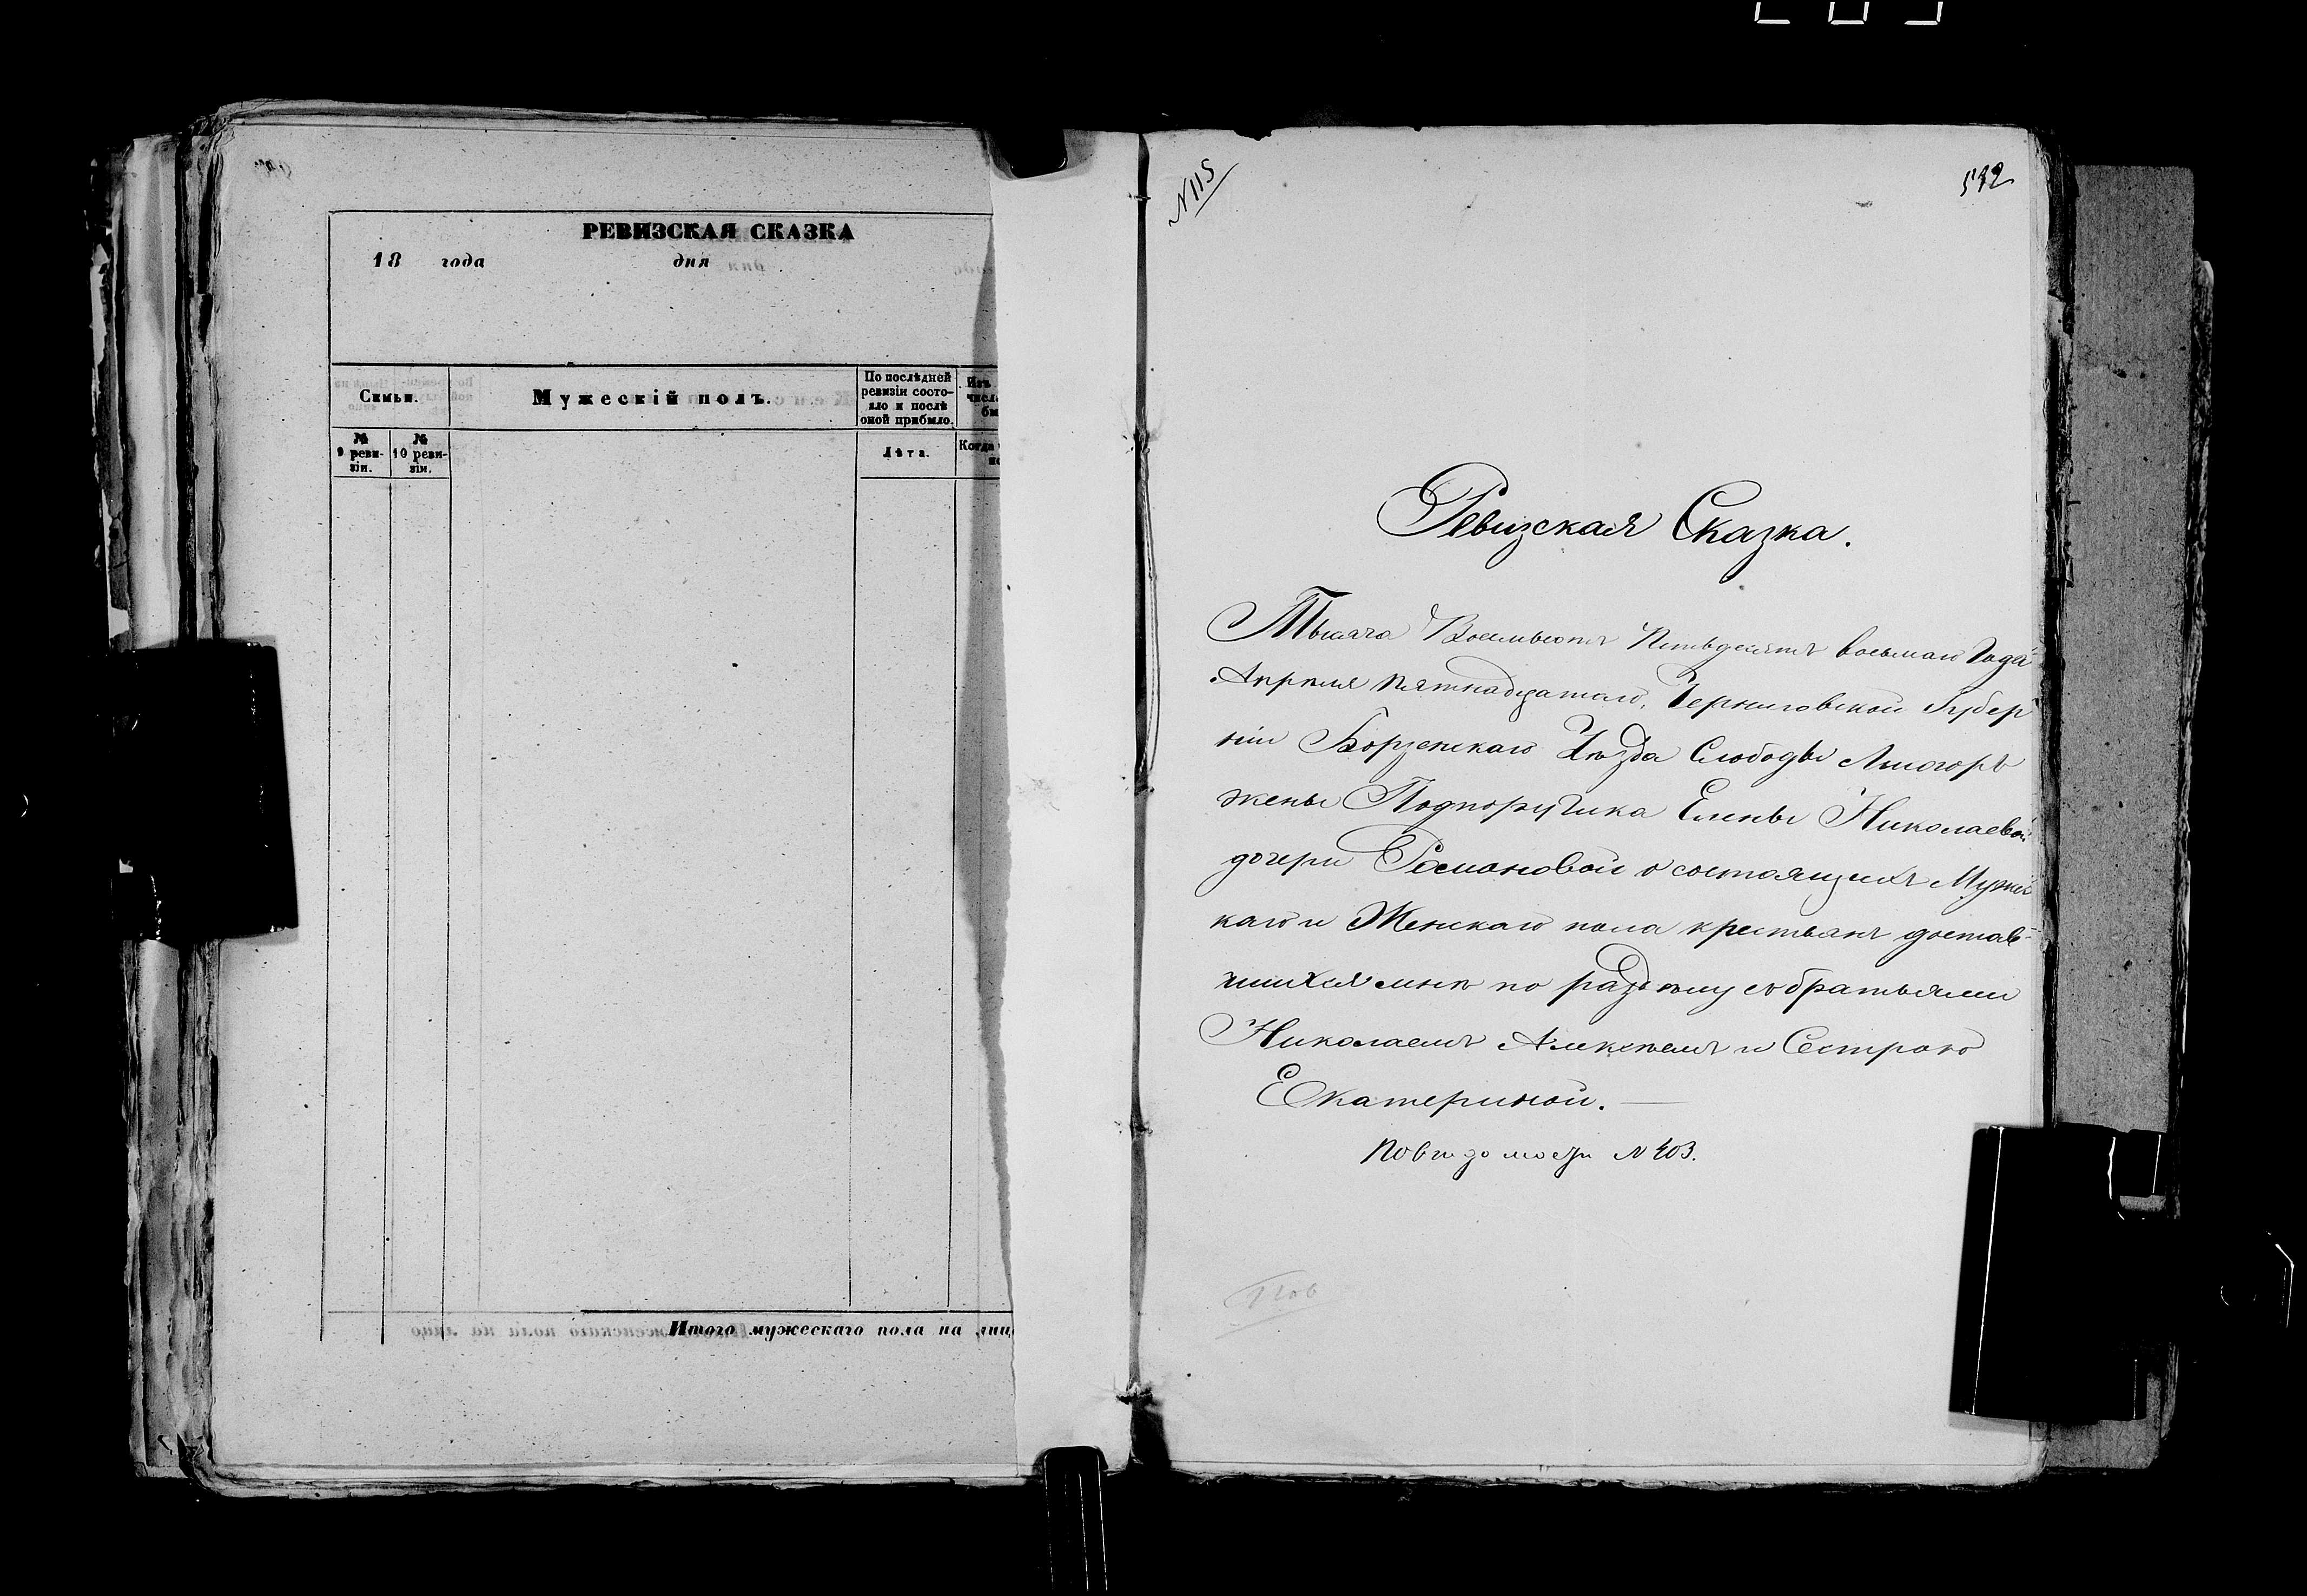 РЕВИЗСКАЯ СКАЗКА
18 года дня
Семьи.
Мужескій полъ.
По послѣдней
ревизіи состо-
яло и послѣ
оной прибыло.
Изъ
числ
бы
№
9 реви-
зіи.
№
10 реви-
зіи.
Лѣта.
Когда
Итого мужескаго пола на лиц
N 115
Ревизская Сказка.
Тысяча Восемьсотъ Пятьдесятъ восьмаго Года
Апрѣля пятнадцатаго, Черниговской Губер
ніи Борзенскаго Уѣзда Слободы
жены Подпоручика Елены Николаевой
дочери Романовой о состоящихъ Мужес
каго и Женскаго пола крестьянъ достав-
шихся мнѣ по раздѣлу съ братьями
Николаемъ Алексѣемъ и Сестрою
Екатериной. —
По вѣдомости N 403.
Пов